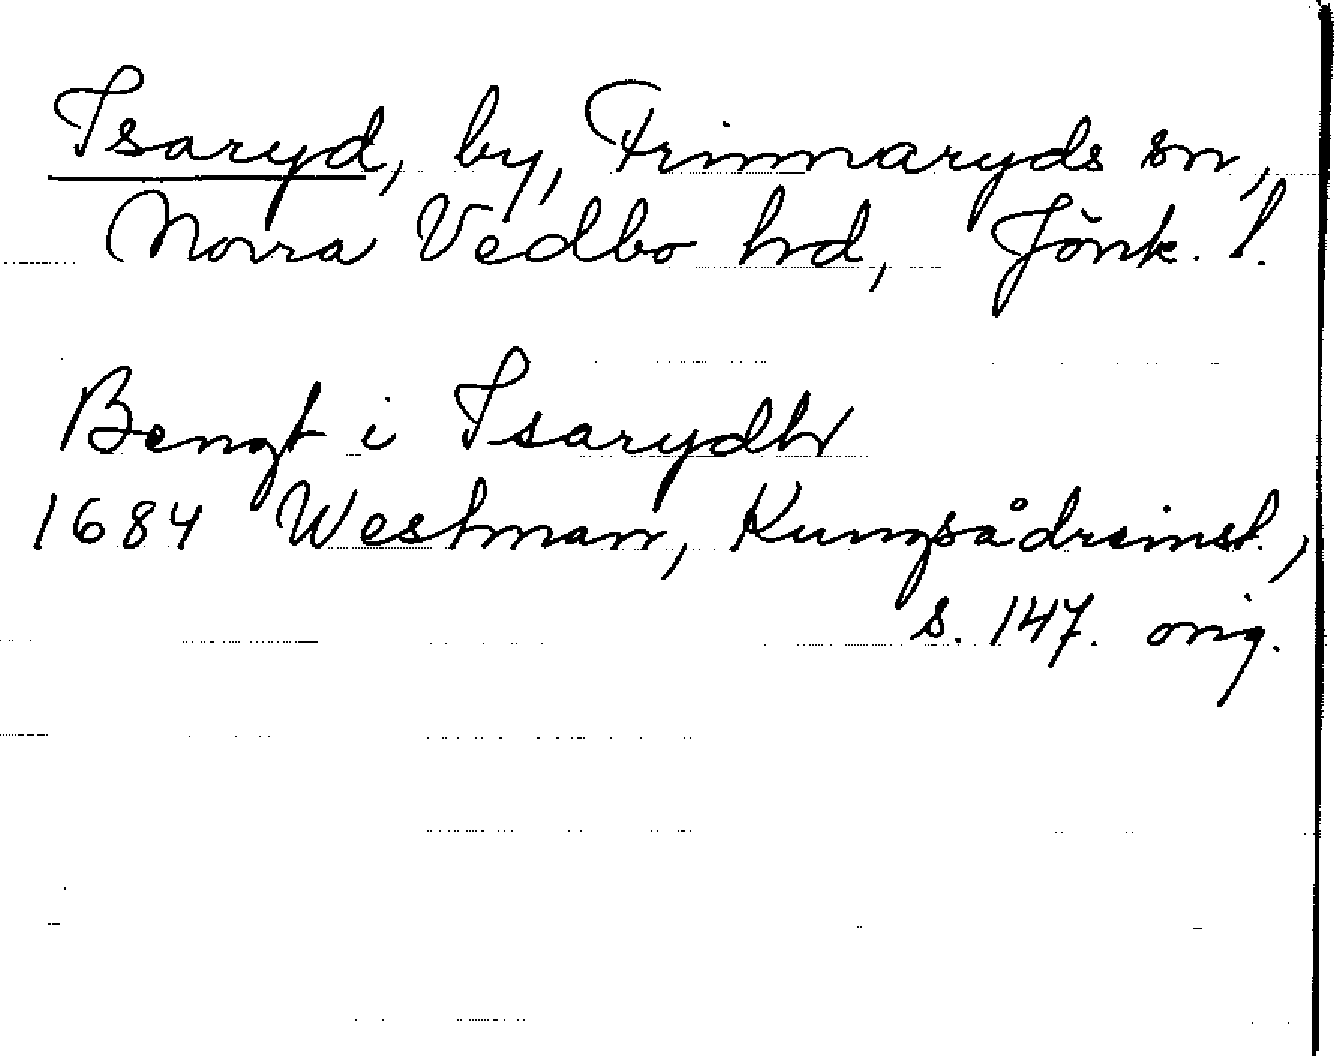 Isaryd, by, Frinnaryds sn,
Norra Vedbo hd, Jönk. l.
Bengt i Isarydh
1684 Westman, Kungsådreinst.,
s. 147. orig.